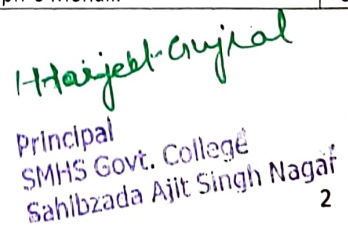 Harjeet Gujral
Principal
SMHS Govt. College
Sahibzada Ajit Singh Nagar
2